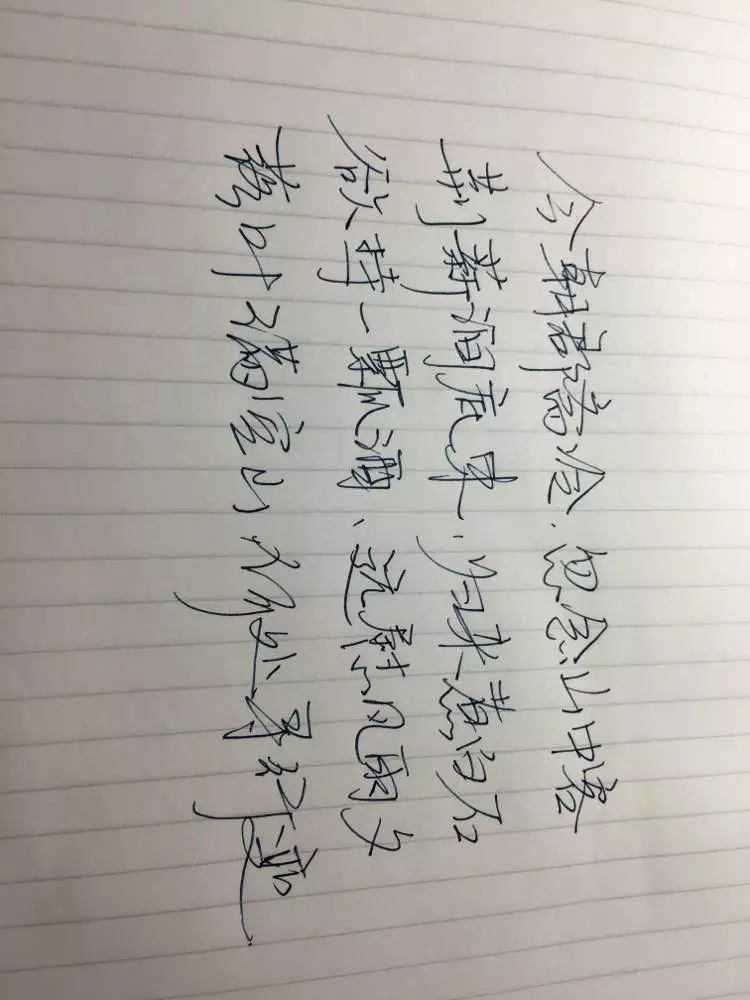 今朝郡斋冷、忽念山中客
荆薪涧底束、归来煮白石
欲持一瓢酒、远慰风雨夕
落叶满空山何处寻行迹